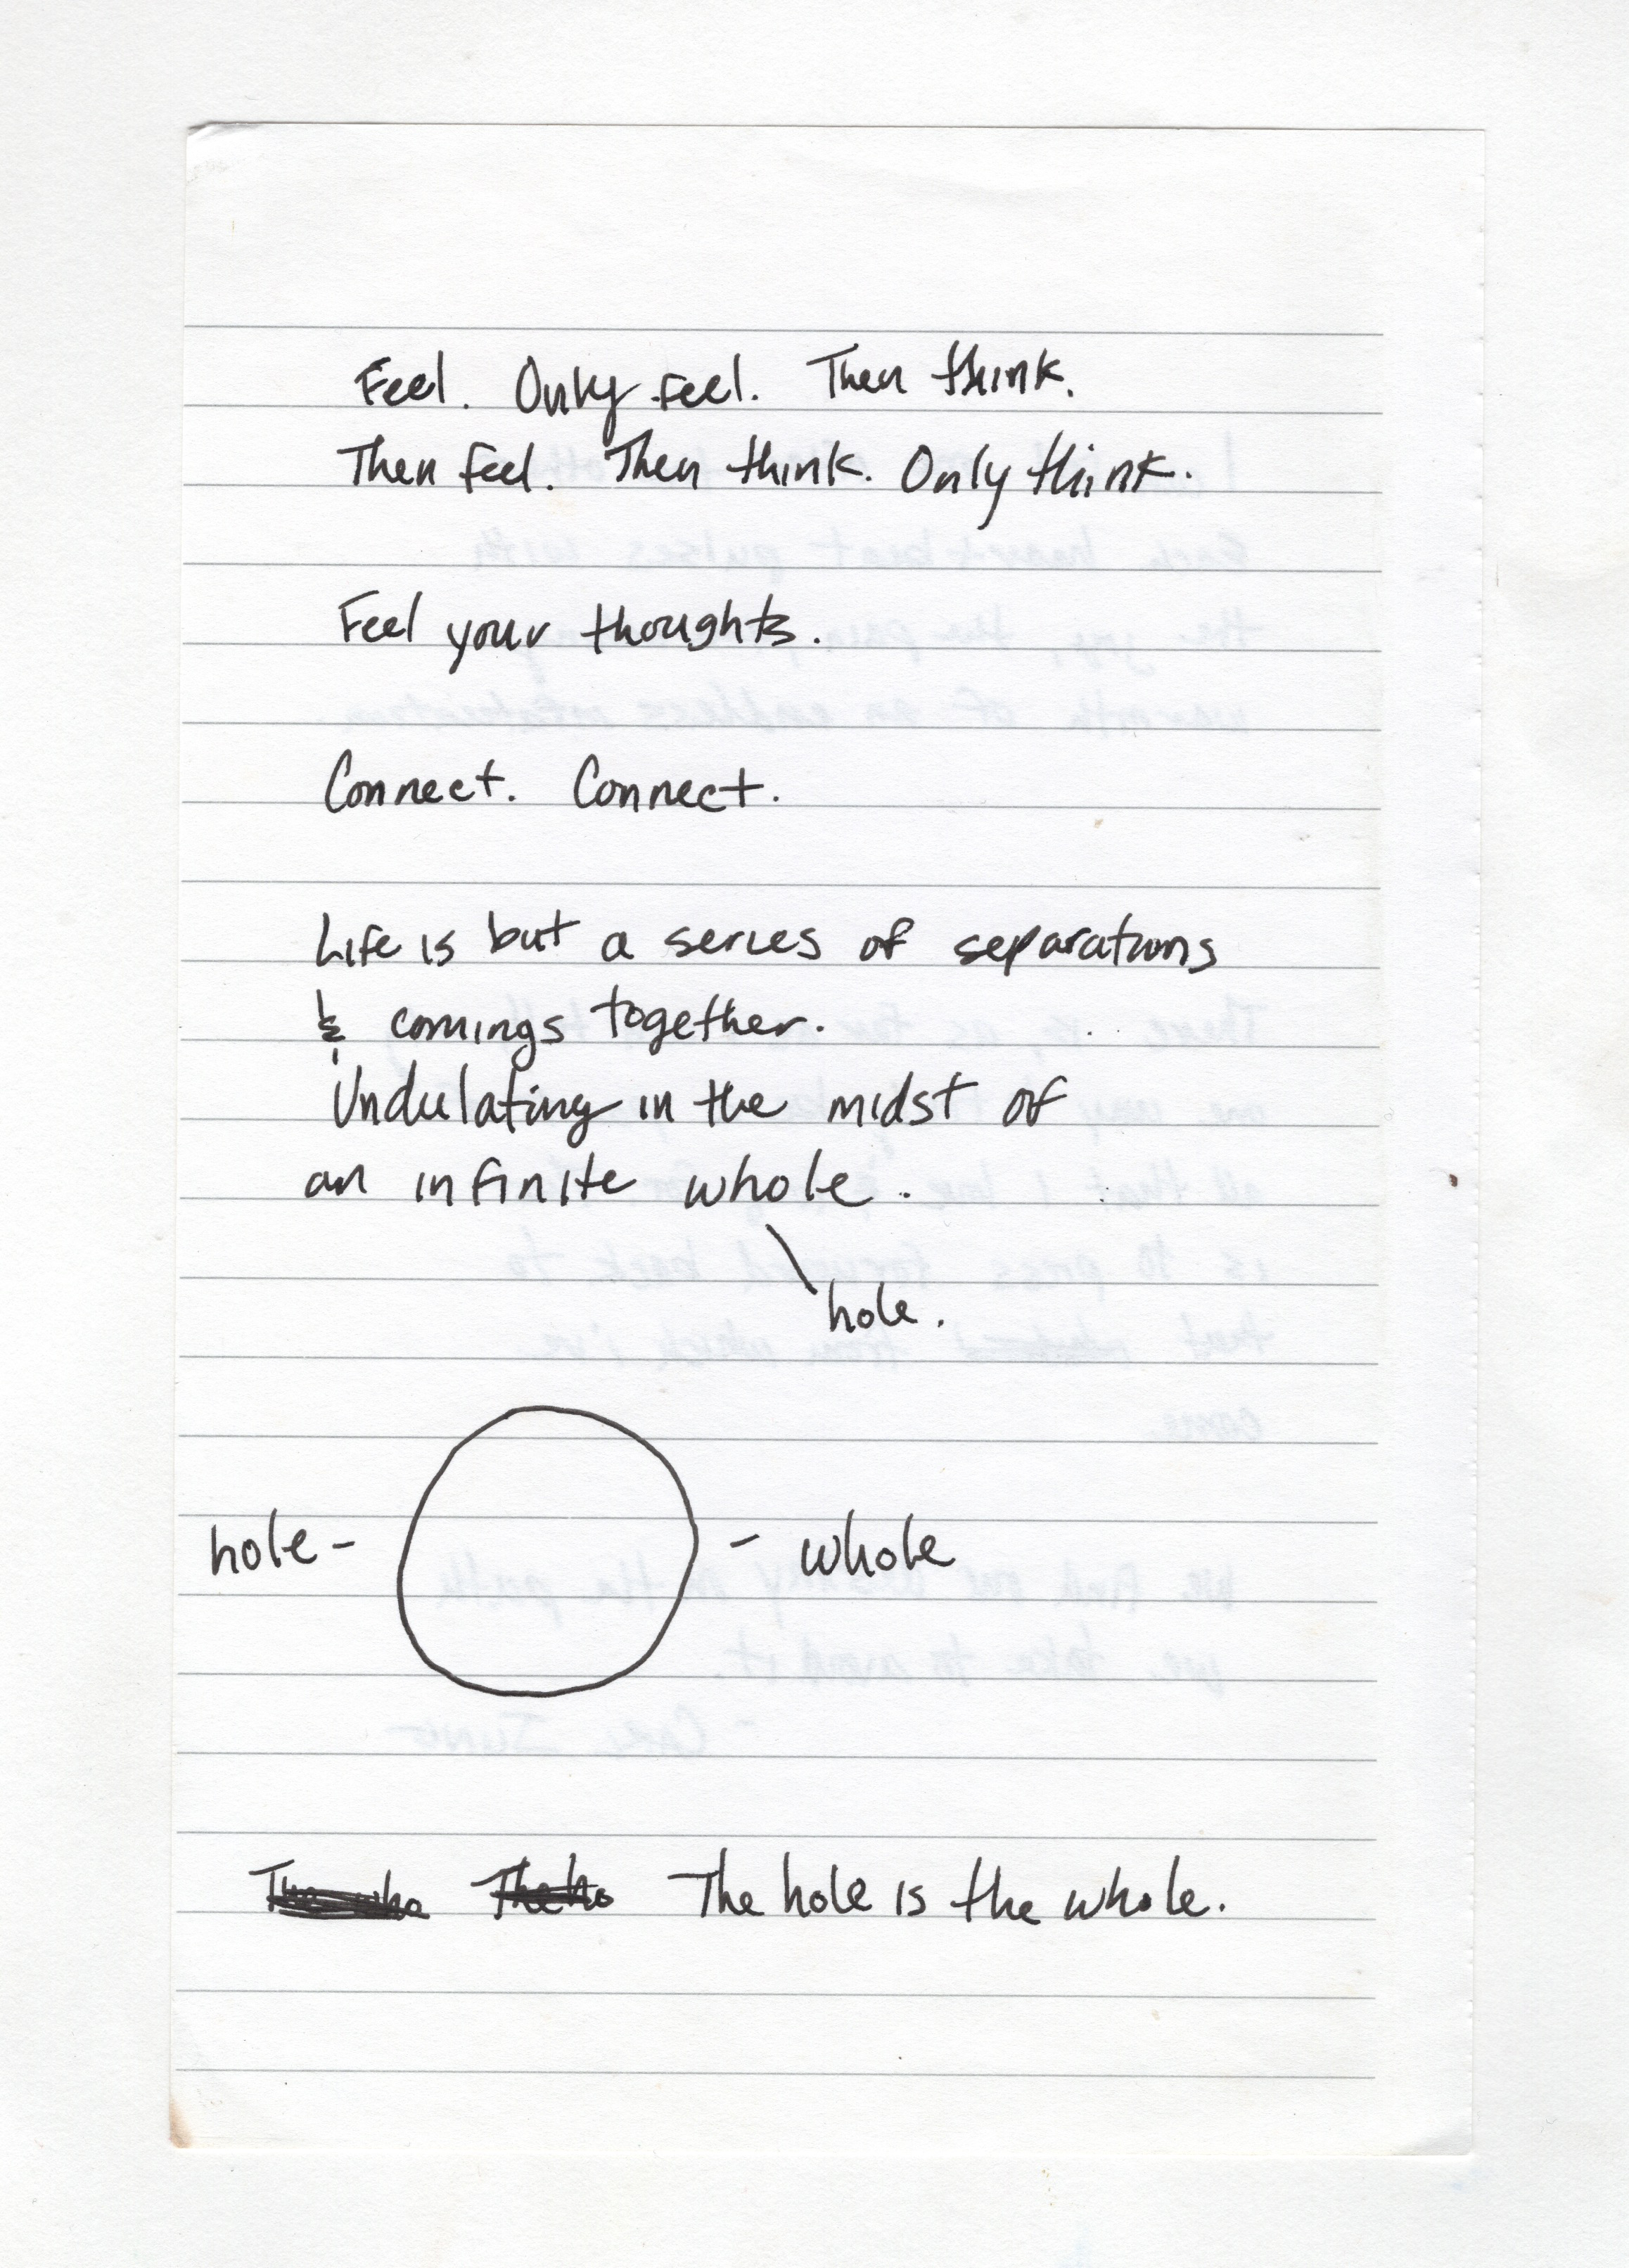 Feel. Only feel. Then think.
Then feel. Then think. Only think.
Feel your thoughts.
Connect. Connect.
Life is but a series of separations
& comings together.
Undulating in the midst of
an infinite whole.
hole.
hole - - whole
The hole is the whole.